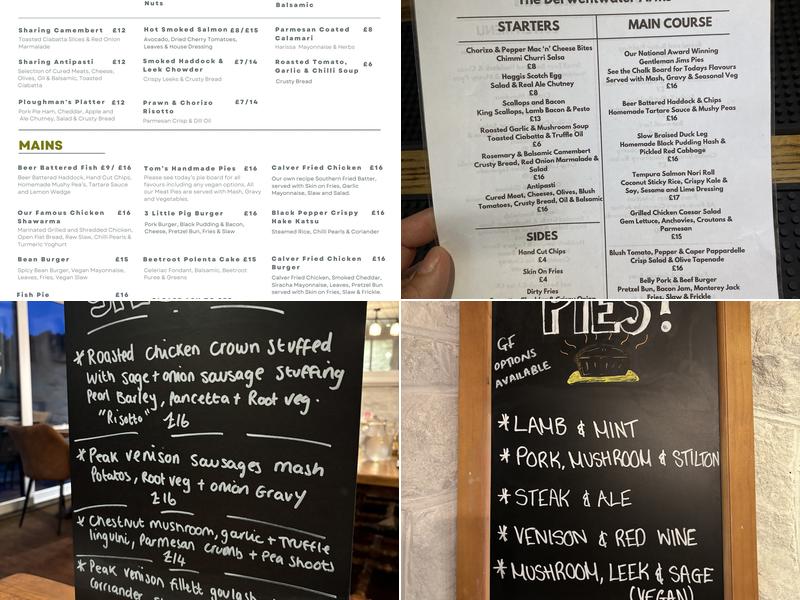 Nuts
Balsamic
Sharing Camembert £12
Toasted Ciabatta Slices & Red Onion
Marmalade
Hot Smoked Salmon £8/£15
Avocado, Dried Cherry Tomatoes,
Leaves & House Dressing
Parmesan Coated £8
Calamari
Harissa Mayonnaise & Herbs
Sharing Antipasti £12
Selection of Cured Meats, Cheese,
Olives, Oil & Balsamic, Toasted
Ciabatta
Smoked Haddock & £7/14
Leek Chowder
Crispy Leeks & Crusty Bread
Roasted Tomato, £6
Garlic & Chilli Soup
Crusty Bread
Ploughman's Platter £12
Pork Pie Ham, Cheddar, Apple and
Ale Chutney, Salad & Crusty Bread
Prawn & Chorizo £7/14
Risotto
Parmesan Crisp & Dill Oil
MAINS
Beer Battered Fish £9/ £16
Beer Battered Haddock, Hand Cut Chips,
Homemade Mushy Pea's, Tartare Sauce
and Lemon Wedge
Tom's Handmade Pies £16
Please see today's pie board for all
flavours including vegan options, All
our Meat Pies are served with Mash, Gravy
and Vegetables.
Calver Fried Chicken £16
Our own recipe Southern Fried Batter,
served with Skin on Fries, Garlic
Mayonnaise, Slaw and Salad.
Our Famous Chicken £16
Shawarma
Marinated Grilled and Shredded Chicken,
Open Flat Bread, Raw Slaw, Chilli Pearls &
Turmeric Yoghurt
3 Little Pig Burger £16
Pork Burger, Black Pudding & Bacon,
Cheese, Pretzel Bun, Fries & Slaw
Black Pepper Crispy £16
Hake Katsu
Steamed Rice, Chilli Pearls & Coriander
Bean Burger £15
Spicy Bean Burger, Vegan Mayonnaise,
Leaves, Fries, Vegan Slaw
Beetroot Polenta Cake £15
Celeriac Fondant, Balsamic, Beetroot
Puree & Greens
Calver Fried Chicken £16
Burger
Calver Fried Chicken, Smoked Cheddar,
Siracha Mayonnaise, Leaves, Pretzel Bun
served with Skin on Fries, Slaw & Frickle.
Fish Pie £16
The Derwentwater Arms
STARTERS
Chorizo & Pepper Mac 'n' Cheese Bites
Chimmi Churri Salsa
£8
Haggis Scotch Egg
Salad & Real Ale Chutney
£8
Scallops and Bacon
King Scallops, Lamb Bacon & Pesto
£13
Roasted Garlic & Mushroom Soup
Toasted Ciabatta & Truffle Oil
£6
Rosemary & Balsamic Camembert
Crusty Bread, Red Onion Marmalade &
Salad
£16
Antipasti
Cured Meat, Cheeses, Olives, Blush
Tomatoes, Crusty Bread, Oil & Balsamic
£16
SIDES
Hand Cut Chips
£4
Skin On Fries
£4
Dirty Fries
MAIN COURSE
Our National Award Winning
Gentleman Jims Pies
See the Chalk Board for Todays Flavours
Served with Mash, Gravy & Seasonal Veg
£16
Beer Battered Haddock & Chips
Homemade Tartare Sauce & Mushy Peas
£16
Slow Braised Duck Leg
Homemade Black Pudding Hash &
Pickled Red Cabbage
£16
Tempura Salmon Nori Roll
Coconut Sticky Rice, Crispy Kale &
Soy, Sesame and Lime Dressing
£17
Grilled Chicken Caesar Salad
Gem Lettuce, Anchovies, Croutons &
Parmesan
£15
Blush Tomato, Pepper & Caper Pappardelle
Crisp Salad & Olive Tapenade
£16
Belly Pork & Beef Burger
Pretzel Bun, Bacon Jam, Monterey Jack
Fries, Slaw & Frickle
* Roasted chicken crown stuffed
with sage + onion sausage stuffing
Pearl Barley, Pancetta + Root veg.
"Risotto" £16
* Peak venison sausages mash
Potatos, Root veg + onion Gravy
£16
* Chestnut mushroom, garlic + Truffle
linguini, Parmesan crumb + Pea shoots
£14
* Peak venison fillett goulash
Corriander
PIES!
GF
OPTIONS
AVAILABLE
* LAMB & MINT
* PORK, MUSHROOM & STILTON
* STEAK & ALE
* VENISON & RED WINE
* MUSHROOM, LEEK & SAGE
(VEGAN)